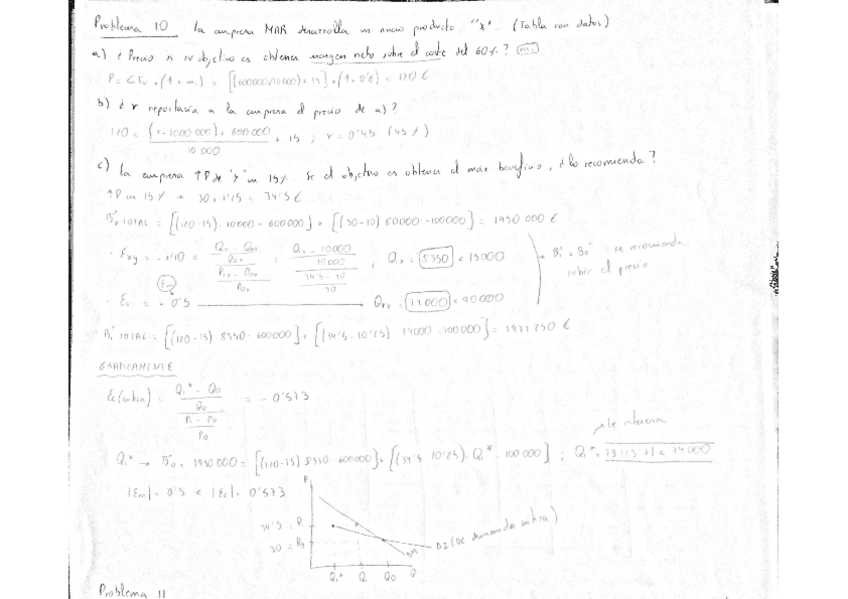 Problema 10 La empresa MAR desarrolla un nuevo producto "X" (Tabla con datos)
a) ¿Precio si su objetivo es obtener margen neto sobre el coste del 60%?
P = CTu · (1 + m) = [(600000/10000) + 15] · (1 + 0'6) = 120 €
b) ¿ r reportaría a la empresa el precio de a) ?
120 = (r · 1000 000) + 600000 / 10 000 + 15 ; r = 0'45 (45%)
c) La empresa ↑P de "Y" un 15%. Si el objetivo es obtener el max beneficio, ¿lo recomienda?
↑P un 15% → 30 · 1'15 = 34'5 €
B0 TOTAL = [(120 - 15) · 10000 - 600000] + [(30 - 10) 80000 - 100000] = 1950 000 €
· Exy = - 1'10 = Q1 - Q0x / Q0x / P1y - P0y / P0y = Q1 - 10000 / 10000 / 34'5 - 30 / 30 ; Qx = 8350 < 15000
B1 > B0 se recomienda subir el precio
(Em)
· = - 0'5 74000 < 90000
· B1 TOTAL = [(120 - 15) 8350 - 600000] + [(34'5 - 10'25) 74000 - 100000] = 1971 250 €
GRÁFICAMENTE
Ec (critica) = Q1* - Q0 / Q0 / P1 - P0 / P0 = - 0'573
le interesa
Q1* → B0 = 1950000 = [(120 - 15) 8350 - 600000] + [(34'5 - 10'25) · Q1* - 100000] ; Q1* = < 74000
|Em| = 0'5 < |Ec| = 0'573
P
34'5 = P1
30 = P0
D2 (De demanda crítica)
Q1* Q1 Q0 Q
Problema 11